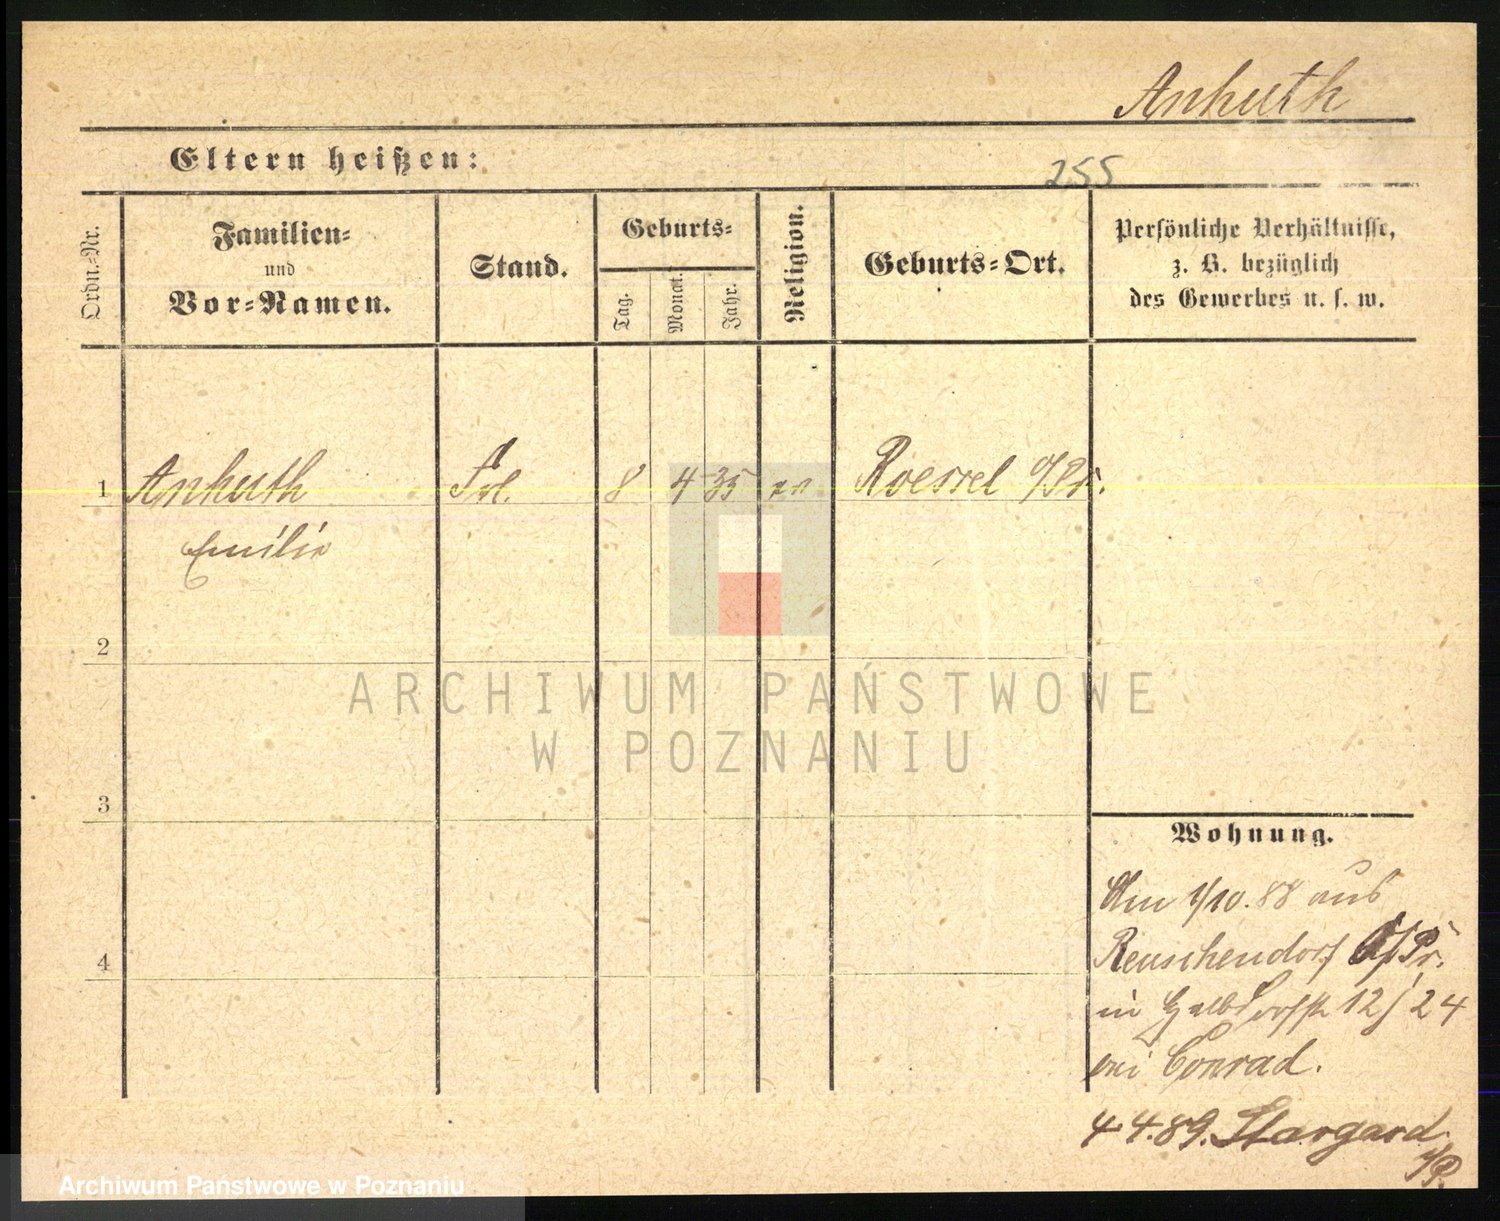 Ankuth
Eltern heißen:
255
Ordn.-Nr.
Familien-
und
Vor-Namen.
Stand.
Geburts-
Tag.
Monat.
Jahr.
Religion.
Geburts-Ort.
Persönliche Verhältnisse,
z. B. bezüglich
des Gewerbes u. s. w.
1 Ankuth Frl. 8 4 35 ev Roessel O/Pr.
Emilie
2
ARCHIWUM PAŃSTWOWE
W POZNANIU
3
4
Wohnung.
Am 1/10. 88 aus
Reuschendorf O/Pr.
in Halbdorfstr 12/24
bei Conrad.
4.4.89. Stargard
i/P.
Archiwum Państwowe w Poznaniu